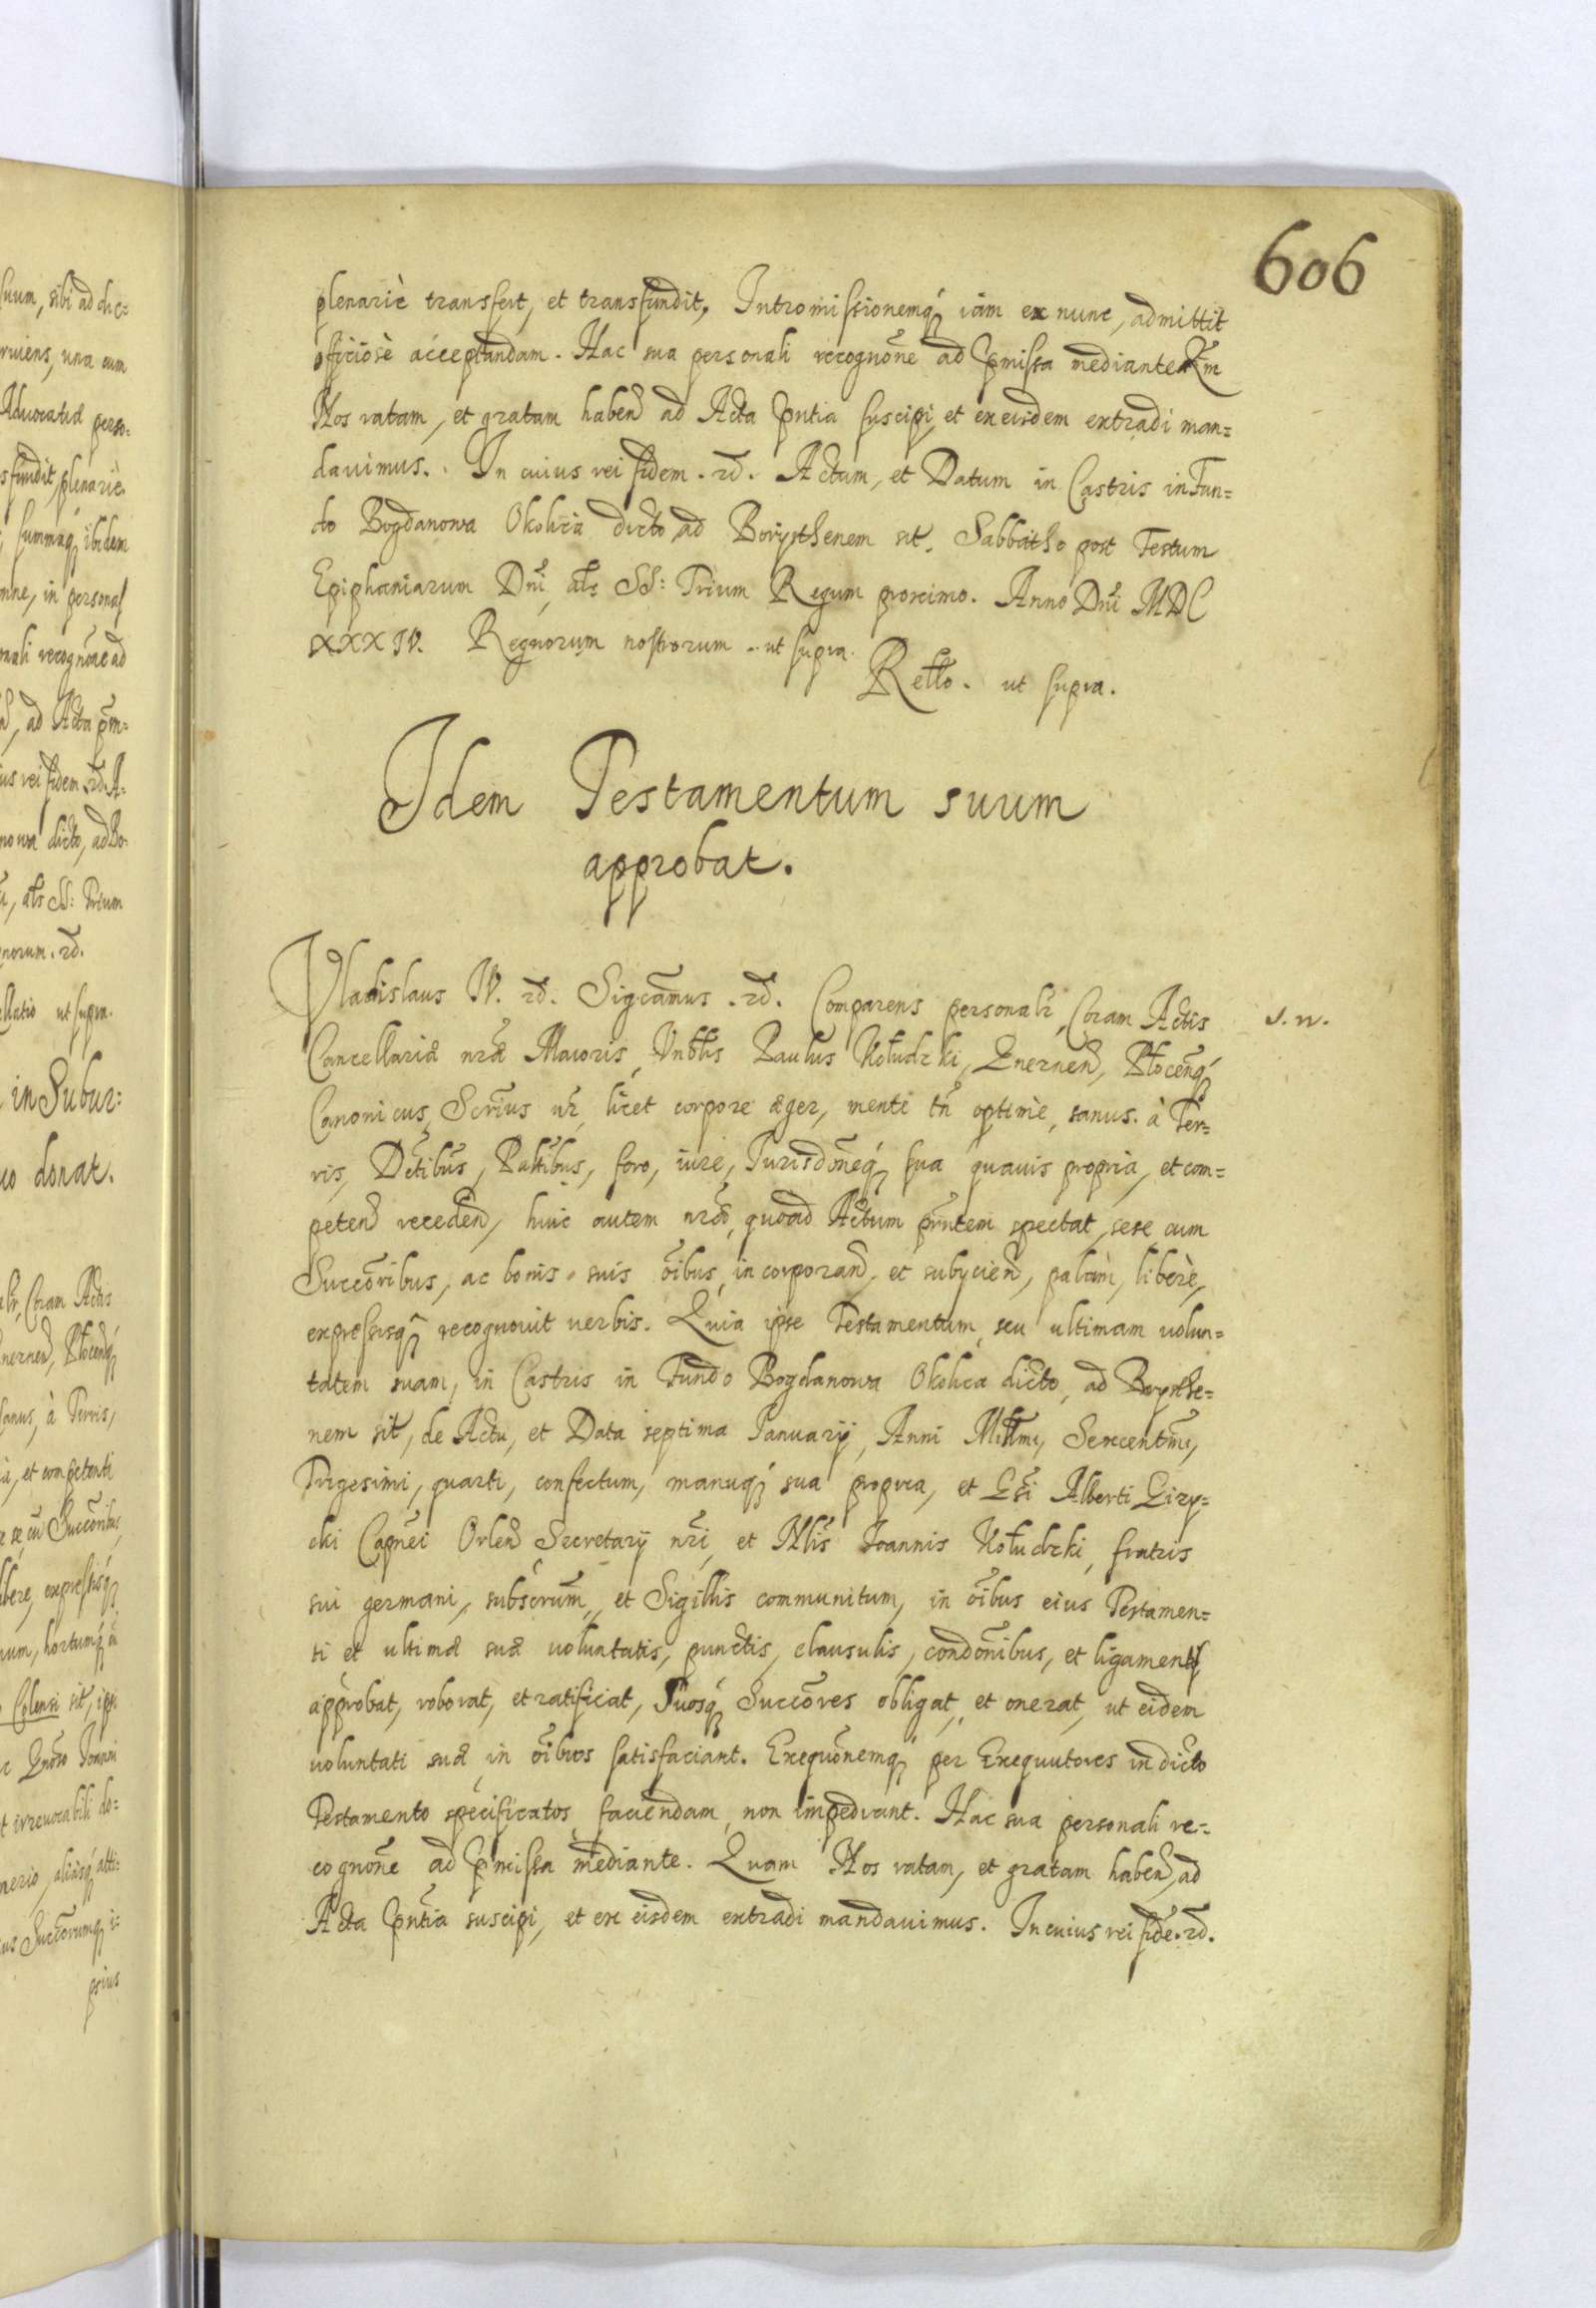 606
plenariè transfert, et transfundit, Intromissionemq́ʒ iam ex nunc, admittit
officiosè acceptandam. Hac sua personali recognoñe ad pmissa mediante Qm̃
Nos ratam, et gratam habeñ ad Acta pntia suscipi, et ex eisdem extradi man=
davimus. In cuius rei fidem. rd. Actum, et Datum in Castris in Fun=
do Bogdanowa Okolica dicto, ad Borysthenem sit. Sabbatho post Festum
Epiphaniarum Dñi, als SS: Trium Regum proximo. Anno Dñi MDC
XXXIV. Regnorum nostrorum. ut supra.
Retto. ut supra.
Idem Testamentum suum
approbat.
Vladislaus IV. rd. Sigcam̃us. rd. Comparens personalr, Coram Actis
Cancellariæ nr̃æ Maioris, Vnblis Paulus Kołudzki, Gnernen, Płocen̄q́ʒ
Canonicus, Scrius nr, licet corpore æger, mente tñ optimè, sanus. à Ter=
ris, Dctibus, Paltibus, foro, iure, Jurisdoñeq́ʒ sua quavis propria, et com=
peteñ recedeñ, huic autem nrõ, quoad Actum pñtem spectat, sese cum
Succoribus, ac bonis suis õibus, incorporañ, et subycieñ, palam, liberè,
expressisq́ʒ recognovit verbis. Quia ipse Testamentum, seu ultimam volun=
tatem suam, in Castris in Fundo Bogdanowa Okolica dicto, ad Borysthe=
nem sit, de Actu, et Data septima Januarij, Anni Millmi, Sexcentmi,
Trigesimi, quarti, confectum, manuq́ʒ sua propria, et Gsi Alberti Giży=
cki Capñei Orleñ Secretarij nr̃i, et Nlis Joannis Kołudzki, fratris
sui germani, subscrum̃, et Sigillis communitum, in õibus eius Testamen=
ti et ultimæ suæ voluntatis, punctis, clausulis, condoñibus, et ligamentʒ
approbat, roborat, et ratificat, Suosq́ʒ Succores obligat, et onerat, ut eidem
voluntati suæ in õibus satisfaciant. Exequoñemq́ʒ per Exequutores in dicto
Testamento specificatos, faciendam, non impediant. Hac sua personali re=
cognoñe ad pmissa mediante. Quam Nos ratam, et gratam habeñ, ad
Acta pntia suscipi, et ex eisdem extradi mandavimus. In cuius rei fidẽ. rd.